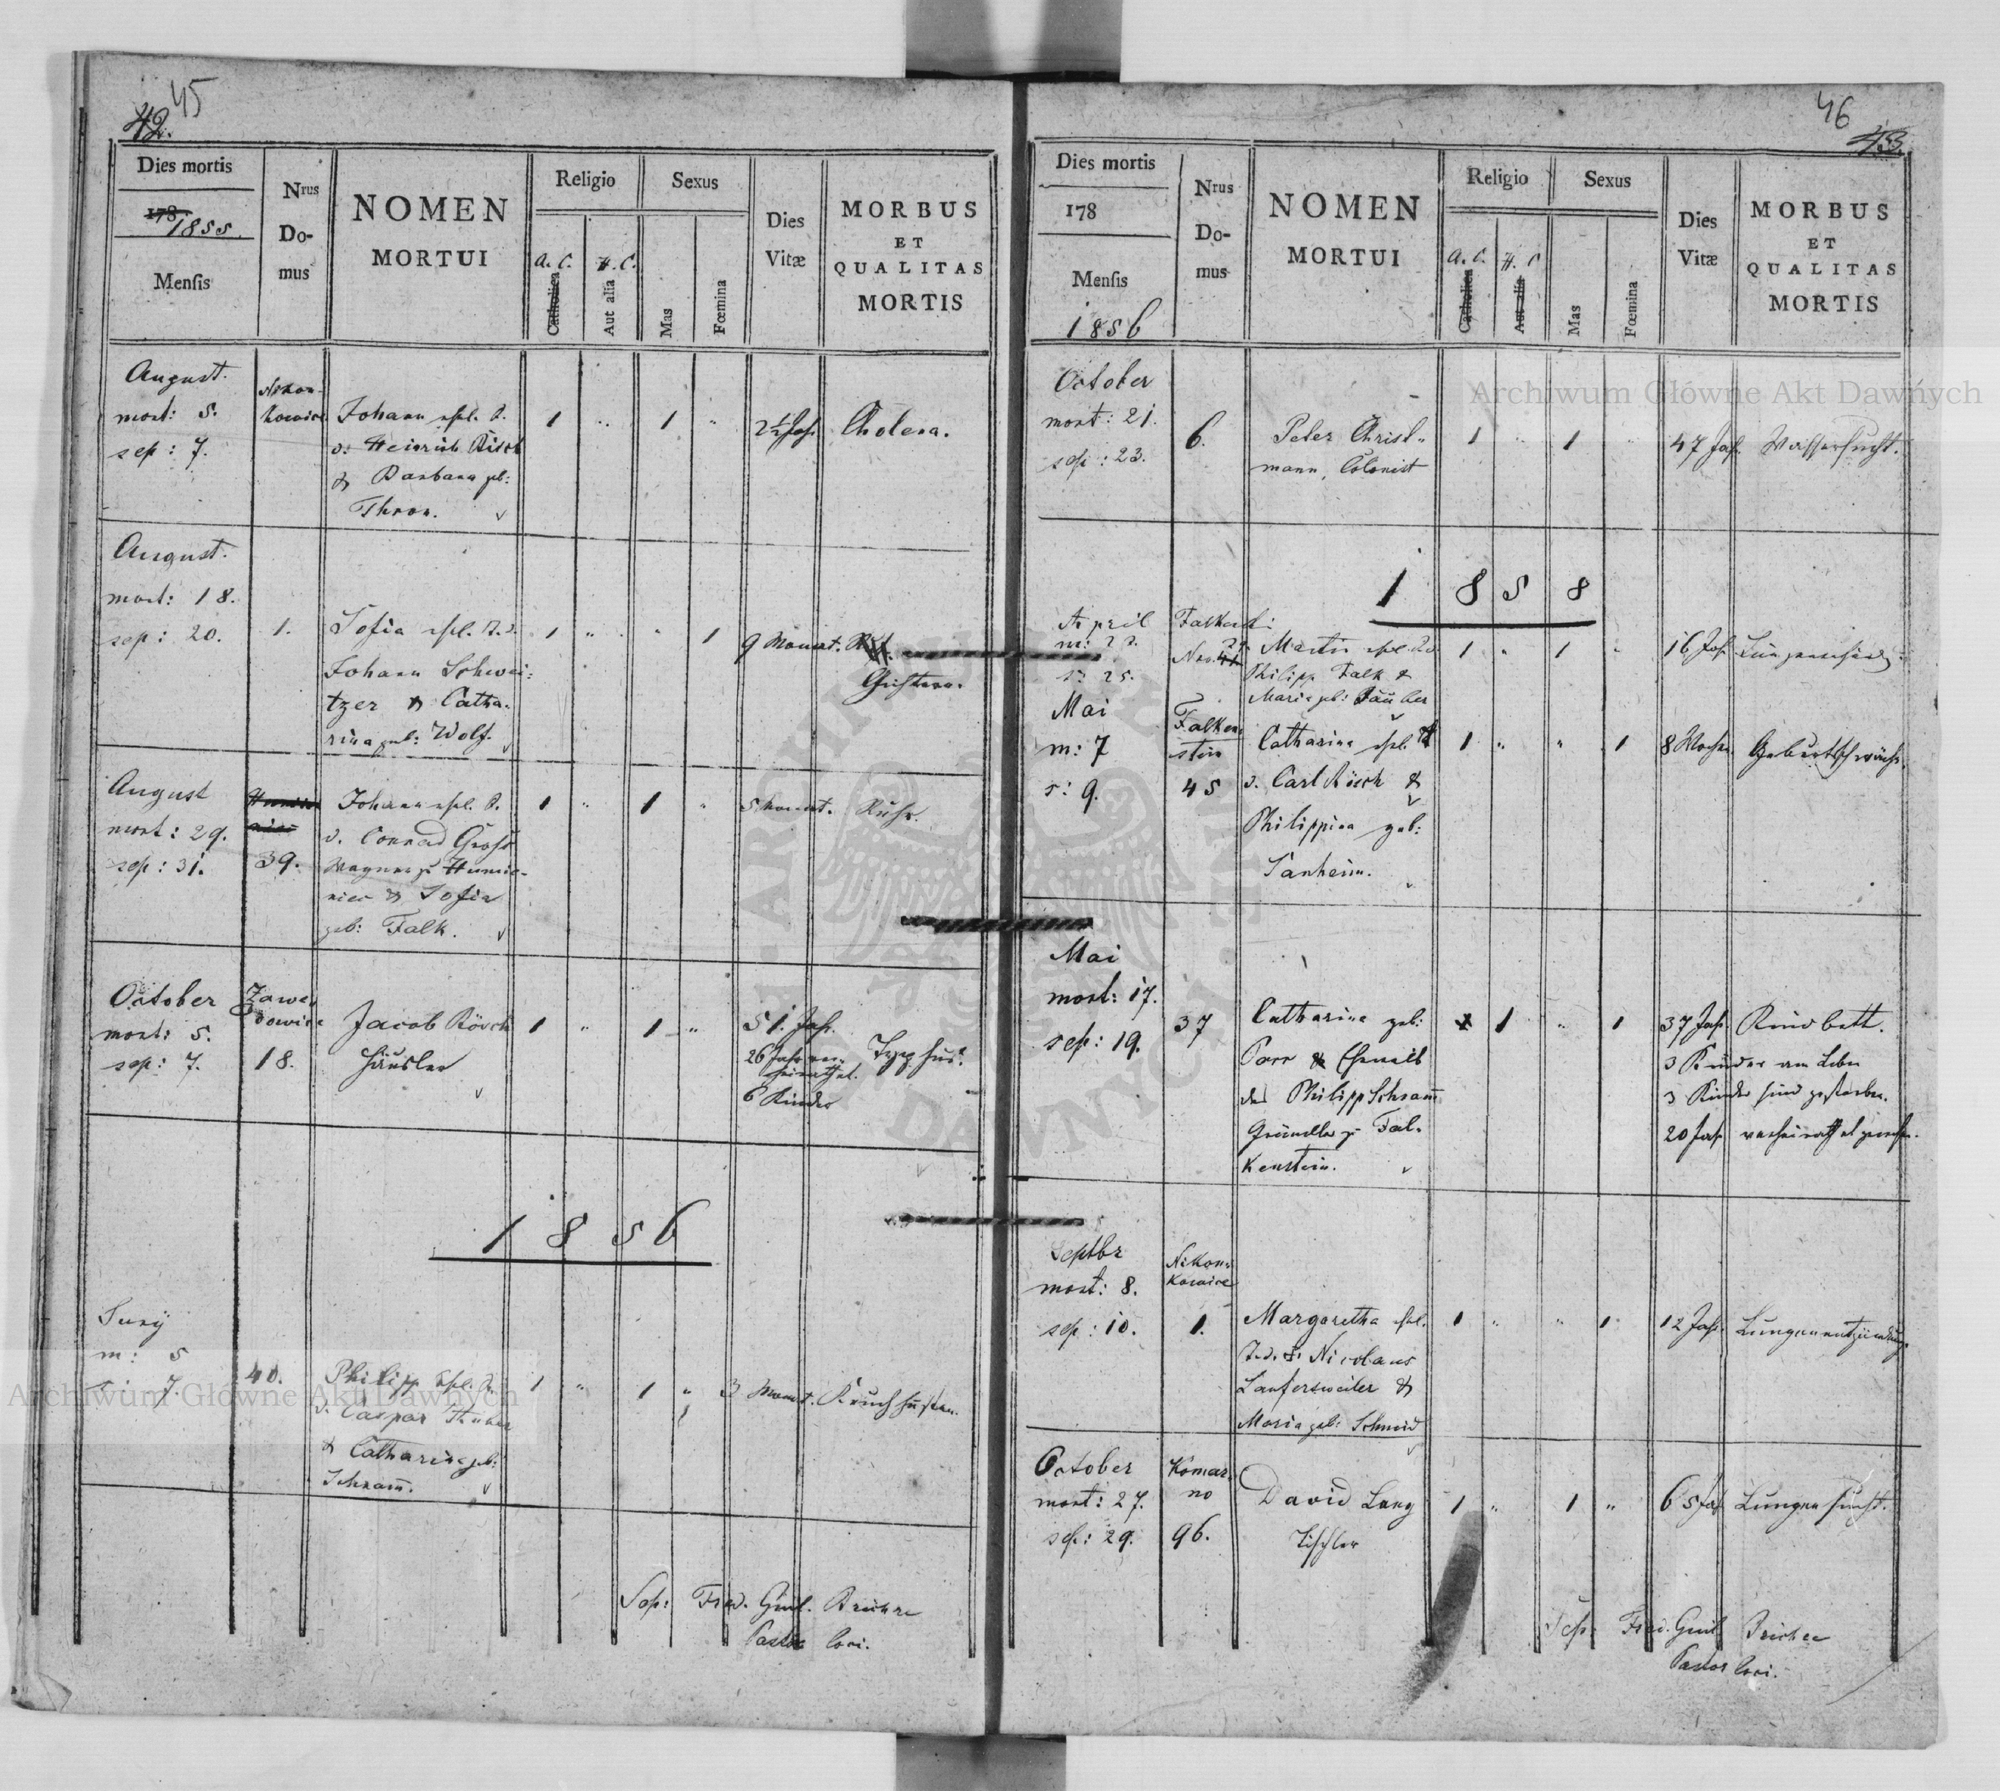 45
42.
Dies mortis
178
1855.
Mensis
Nrus
Do-
mus
NOMEN
MORTUI
Religio
A. C.
Catholica
H. C.
Aut alia
Sexus
Mas
Fœmina
Dies
Vitæ
MORBUS
ET
QUALITAS
MORTIS
August.
mort: 5.
sep: 7.
Johann
v: Heinrich Rösch
& Barbara geb:
Thron.
1 " 1 "
2½ Jah.
Cholera.
August.
mort: 18.
sep: 20.
1.
Sofia
Johann Schwei:
tzer & Catha-
rina geb: Wolf.
1 " " 1
9 Monat.
August
mort: 29.
sep: 31.
39.
Johann
v. Conrad Groß
Wagner zu Humie-
niec & Sofia
geb: Falk.
1 " 1 "
5 Monat.
Ruhr.
October
mort: 5.
sep: 7.
Zawei
dowice
18.
Jacob Rösch
Häusler
1 " 1 "
51. Jah.
26 Jahr ver-
heirathet.
6 Kinder
Typhus.
1856
m: 5
s: 7.
40.
Philipp
v. Caspar
& Catharina geb:
Schram̄.
1 " 1 "
3 Monat.
Keuchhusten.
Sep: Frid. Guil.
Pastor loci.
46
43.
Dies mortis
178
Mensis
1856
Nrus
Do-
mus
NOMEN
MORTUI
Religio
A. C.
Catholica
H. C
Aut alia
Sexus
Mas
Fœmina
Dies
Vitæ
MORBUS
ET
QUALITAS
MORTIS
October
mort: 21.
sep: 23.
6.
Peter Christ"
mann, Colonist
1 " 1 "
47 Jah.
Wassersucht.
1858
April
s: 25.
Martin
Philipp Falk &
Maria geb:
1 " 1 "
16 Jah.
Mai
m: 7
s: 9.
Falken
stein
45
Catharina
v. Carl Rösch &
Philippina geb:
Sanheim.
1 " " 1
8 Wochen
Geburtsschwäche.
Mai
mort: 17.
sep: 19.
37
Catharina geb:
Porr & Eheweib
des Philipp Schram̄
Grundler zu Fal-
kenstein.
1 " 1
37 Jah.
Kindbett.
3 Kinder am Leben
3 Kinder sind gestorben.
20 Jah verheirathet gewesen.
Septbr
mort: 8.
sep: 10.
Nikon-
kowice
1.
Margaretha
Nicolaus
Laufersweiler &
Maria geb: Schmid
1 " " 1
12 Jah.
Lungenentzündung.
October
mort: 27.
sep: 29.
Komar
no
96.
David Lang
Tischler
1 " 1 "
65 Jah
Lungensucht.
Sep. Frid. Guil
Pastor loci.
Archiwum Główne Akt Dawnych
Archiwum Główne Akt Dawnych